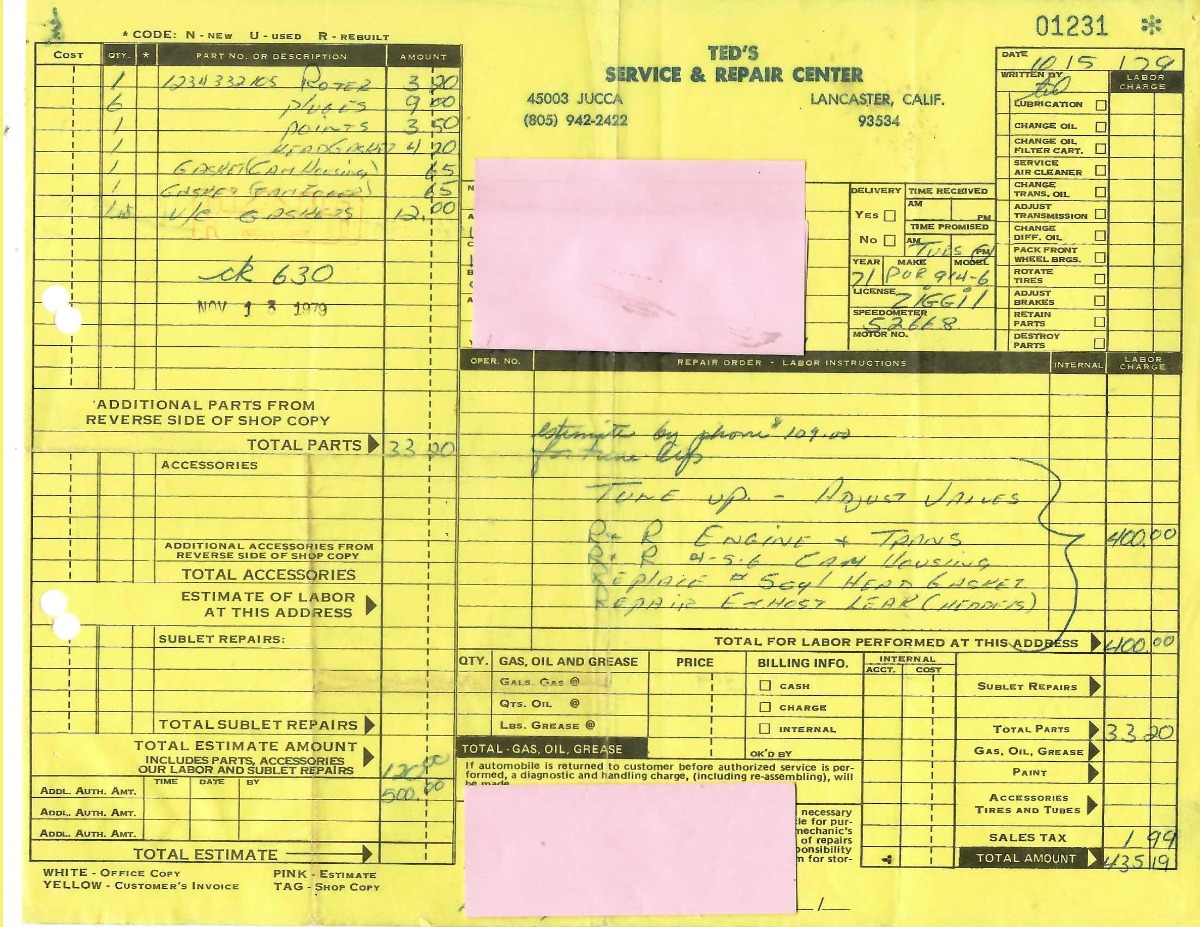 * CODE: N - NEW U - USED R - REBUILT
01231 *
TED'S
SERVICE & REPAIR CENTER
45003 JUCCA
(805) 942-2422
LANCASTER, CALIF.
93534
COST QTY. * PART NO. OR DESCRIPTION AMOUNT
1 1234332105 ROTER 3 20
6 PLUGES 9 00
1 POINTS 3 50
1 HEADGASKET 4 20
1 GASKET (CAM HOUSING) 65
1 GASKET 65
V/C GASKETS 12.00
ck 630
NOV 13 1979
ADDITIONAL PARTS FROM
REVERSE SIDE OF SHOP COPY
TOTAL PARTS 33 20
ACCESSORIES
ADDITIONAL ACCESSORIES FROM
REVERSE SIDE OF SHOP COPY
TOTAL ACCESSORIES
ESTIMATE OF LABOR
AT THIS ADDRESS
SUBLET REPAIRS:
TOTAL SUBLET REPAIRS
TOTAL ESTIMATE AMOUNT
INCLUDES PARTS, ACCESSORIES
OUR LABOR AND SUBLET REPAIRS
120.00
TIME DATE BY
ADDL. AUTH. AMT. 500.00
ADDL. AUTH. AMT.
ADDL. AUTH. AMT.
TOTAL ESTIMATE
WHITE - OFFICE COPY PINK - ESTIMATE
YELLOW - CUSTOMER'S INVOICE TAG - SHOP COPY
DATE 10 15 179
WRITTEN BY Ted
LABOR CHARGE
LUBRICATION
CHANGE OIL
CHANGE OIL
FILTER CART.
SERVICE
AIR CLEANER
CHANGE
TRANS. OIL
ADJUST
TRANSMISSION
CHANGE
DIFF. OIL
PACK FRONT
WHEEL BRGS.
ROTATE
TIRES
ADJUST
BRAKES
RETAIN
PARTS
DESTROY
PARTS
DELIVERY TIME RECEIVED
YES AM PM
TIME PROMISED
NO AM TUES PM
YEAR MAKE MODEL
71 POR 914-6
LICENSE ZIGGII
SPEEDOMETER
52668
MOTOR NO.
OPER. NO. REPAIR ORDER - LABOR INSTRUCTIONS INTERNAL LABOR CHARGE
estimate by phone $109.00
for tune up
TUNE UP. - ADJUST VALVES
R + R ENGINE + TRANS 400.00
R + R 4-5-6 CAM HOUSING
REPLACE # 5 CYL HEAD GASKET
REPAIR EXHOST LEAK (HEADERS)
TOTAL FOR LABOR PERFORMED AT THIS ADDRESS 400.00
QTY. GAS, OIL AND GREASE PRICE BILLING INFO. INTERNAL
ACCT. COST
GALS. GAS @ CASH
QTS. OIL @ CHARGE
LBS. GREASE @ INTERNAL
TOTAL - GAS, OIL, GREASE OK'D BY
SUBLET REPAIRS
TOTAL PARTS 33 20
GAS, OIL, GREASE
PAINT
ACCESSORIES
TIRES AND TUBES
SALES TAX 1 99
TOTAL AMOUNT 435 19
If automobile is returned to customer before authorized service is per-
formed, a diagnostic and handling charge, (including re-assembling), will
be made.
necessary
le for pur-
mechanic's
of repairs
ponsibility
m for stor-